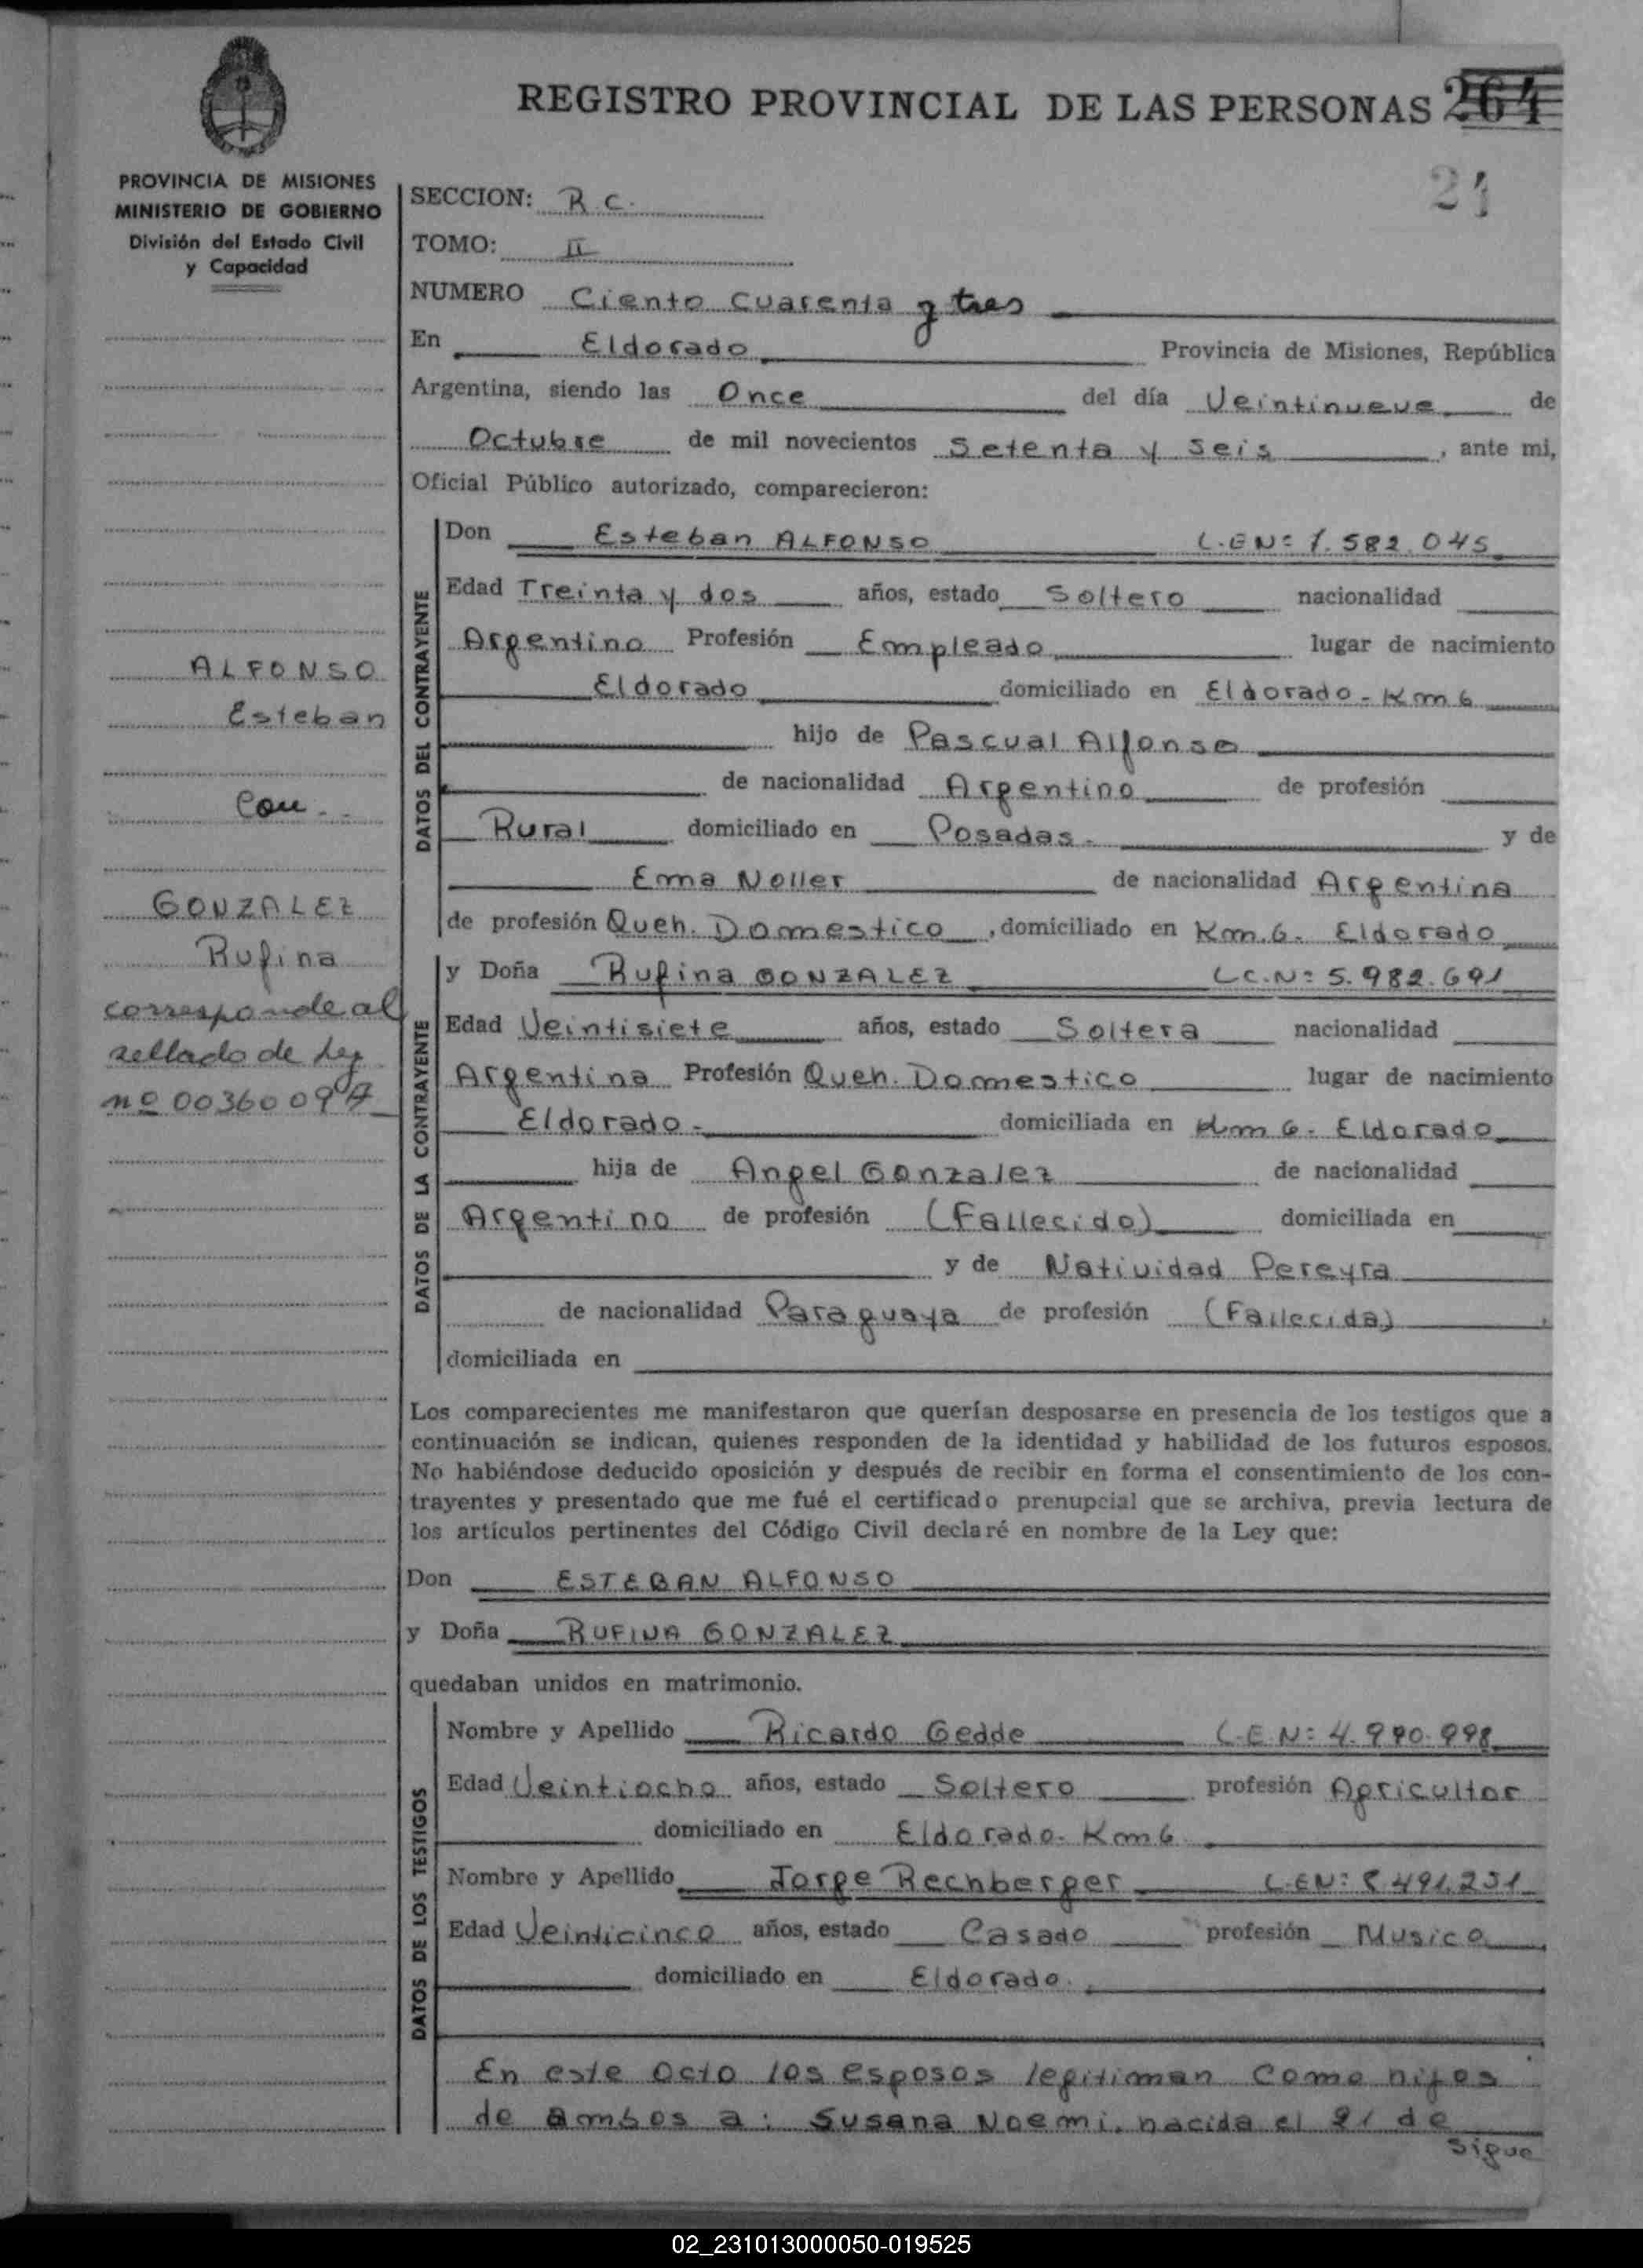 REGISTRO PROVINCIAL DE LAS PERSONAS 264
21
PROVINCIA DE MISIONES
MINISTERIO DE GOBIERNO
División del Estado Civil
y Capacidad
SECCION: R.C.
TOMO: II
NUMERO Ciento Cuarenta y tres
En Eldorado Provincia de Misiones, República
Argentina, siendo las Once del día Veintinueve de
Octubre de mil novecientos Setenta y Seis, ante mi,
Oficial Público autorizado, comparecieron:
ALFONSO
Esteban
Con
GONZALEZ
Rufina
corresponde al
sellado de Ley
nº 00360097
DATOS DEL CONTRAYENTE
Don Esteban ALFONSO L.E.Nº 7.582.045
Edad Treinta y dos años, estado Soltero nacionalidad
Argentino Profesión Empleado lugar de nacimiento
Eldorado domiciliado en Eldorado - Km 6
hijo de Pascual Alfonso
de nacionalidad Argentino de profesión
Rural domiciliado en Posadas. y de
Ema Noller de nacionalidad Argentina
de profesión Queh. Domestico, domiciliado en Km. 6. Eldorado
DATOS DE LA CONTRAYENTE
y Doña Rufina GONZALEZ L.C.Nº 5.982.691
Edad Veintisiete años, estado Soltera nacionalidad
Argentina Profesión Queh. Domestico lugar de nacimiento
Eldorado - domiciliada en Km 6. Eldorado
hija de Angel Gonzalez de nacionalidad
Argentino de profesión (Fallecido) domiciliada en
y de Natividad Pereyra
de nacionalidad Paraguaya de profesión (Fallecida)
domiciliada en
Los comparecientes me manifestaron que querían desposarse en presencia de los testigos que a
continuación se indican, quienes responden de la identidad y habilidad de los futuros esposos.
No habiéndose deducido oposición y después de recibir en forma el consentimiento de los con-
trayentes y presentado que me fué el certificado prenupcial que se archiva, previa lectura de
los artículos pertinentes del Código Civil declaré en nombre de la Ley que:
Don ESTEBAN ALFONSO
y Doña RUFINA GONZALEZ
quedaban unidos en matrimonio.
DATOS DE LOS TESTIGOS
Nombre y Apellido Ricardo Gedde L.E.Nº 4.990.998
Edad Veintiocho años, estado Soltero profesión Agricultor
domiciliado en Eldorado - Km 6
Nombre y Apellido Jorge Rechberger L.E.Nº 8.491.231
Edad Veinticinco años, estado Casado profesión Musico
domiciliado en Eldorado.
En este acto los esposos legitiman como hijos
de ambos a: Susana Noemi, nacida el 21 de
Sigue
02_231013000050-019525